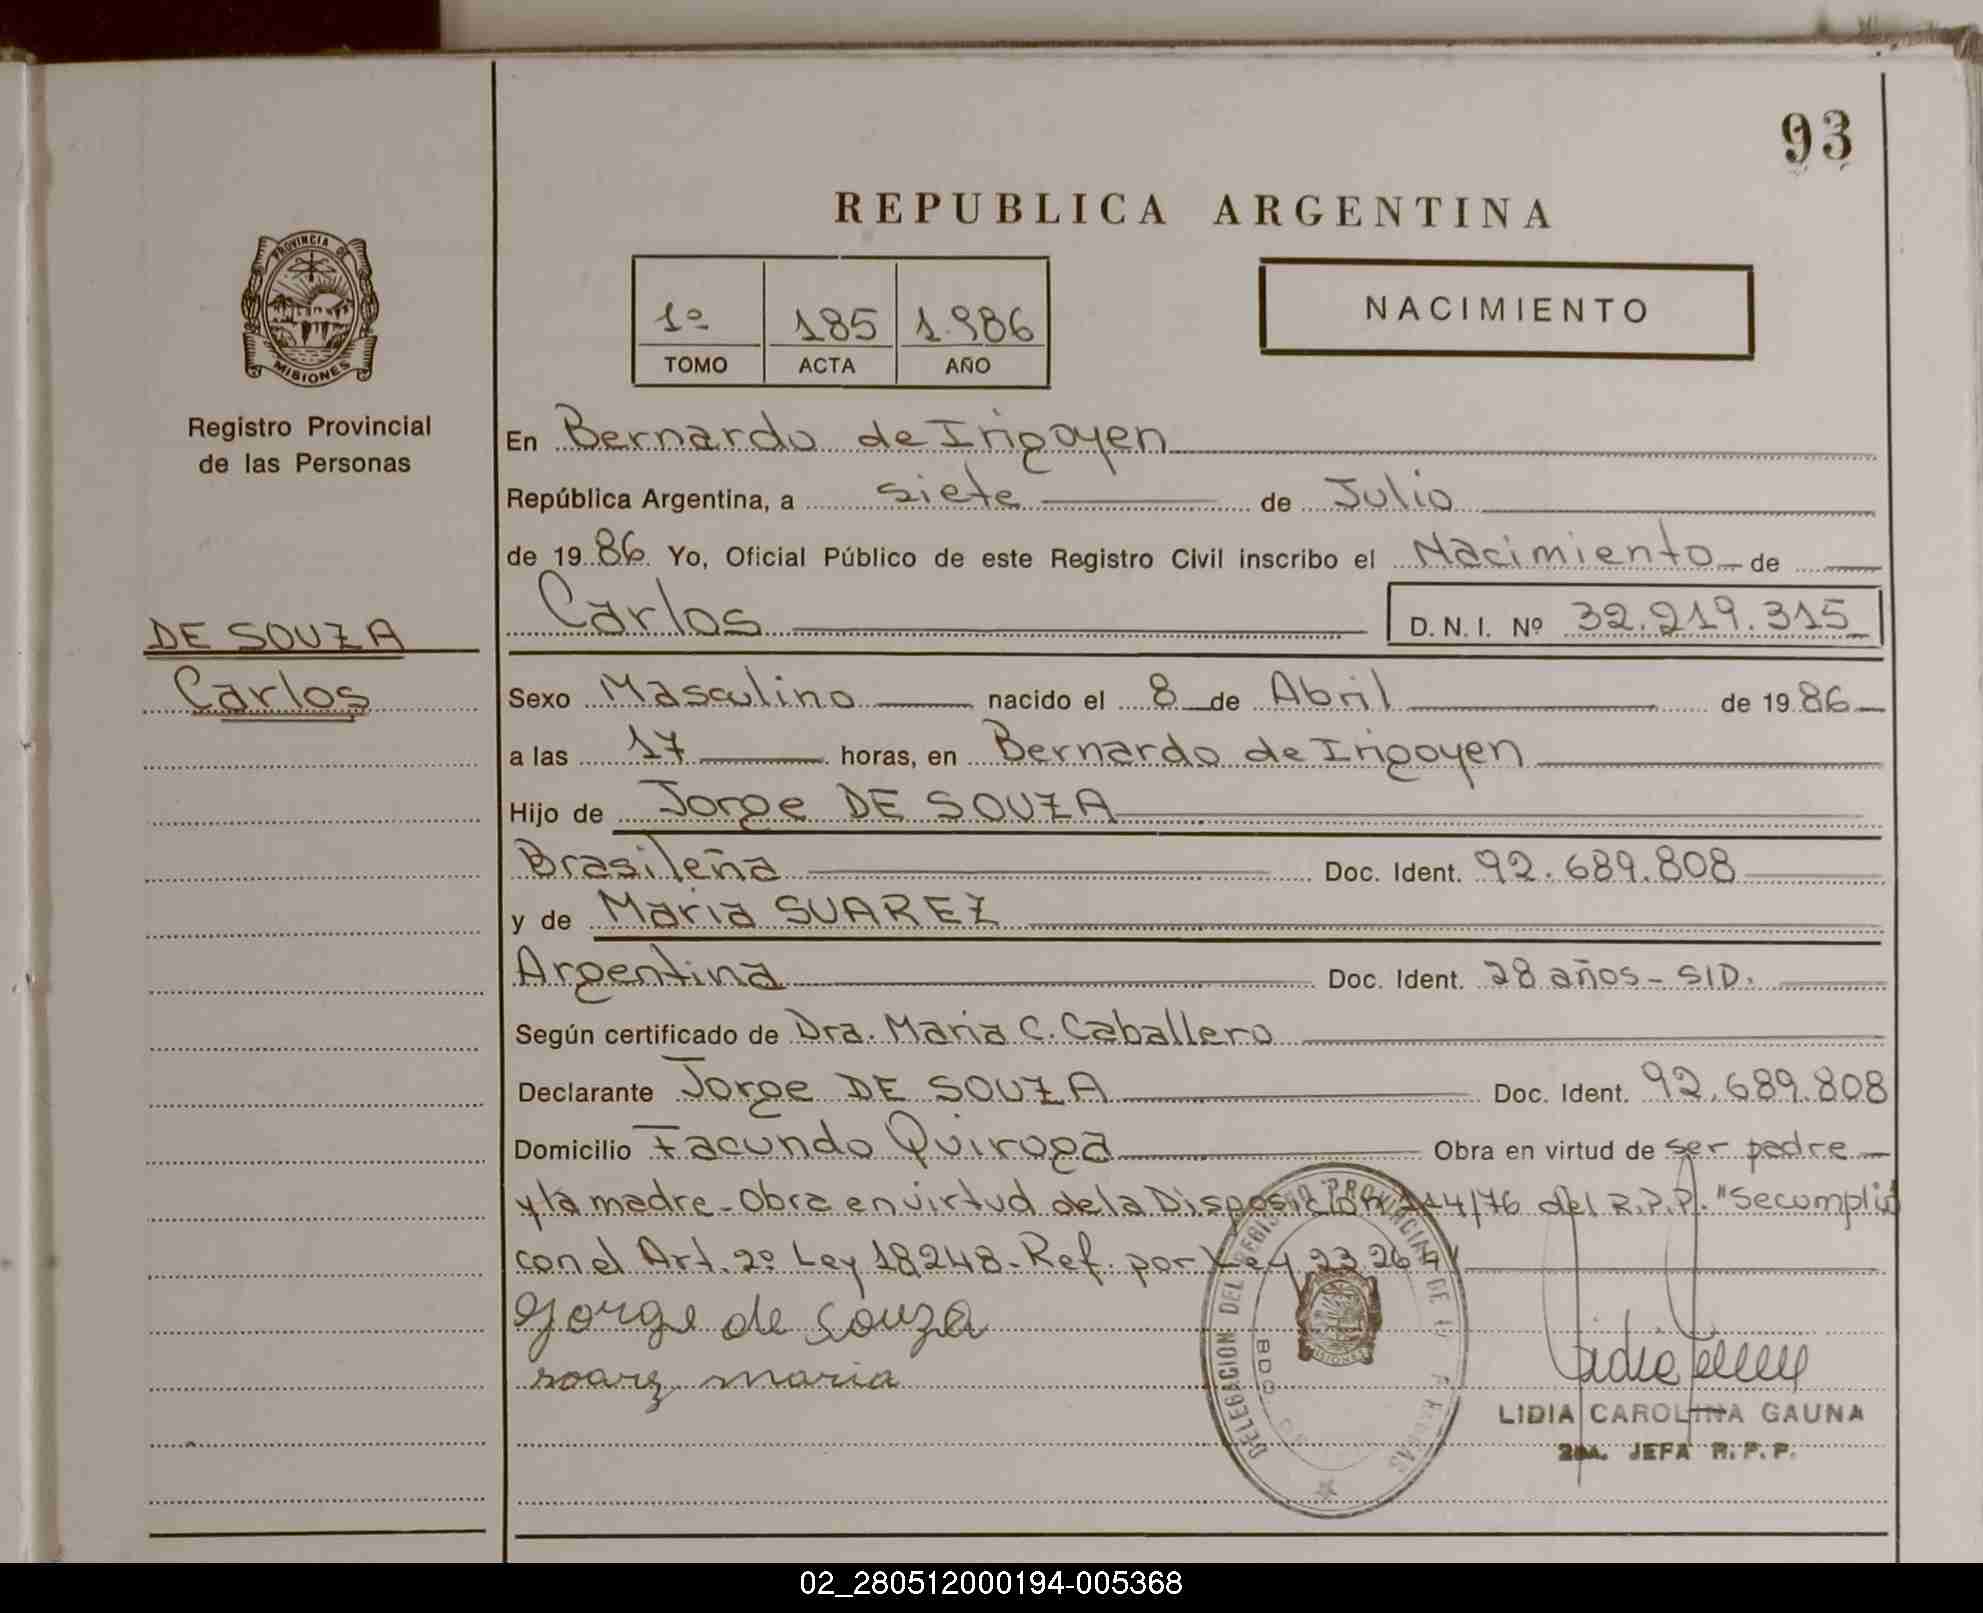 93
REPUBLICA ARGENTINA
PROVINCIA DE
MISIONES
1º 185 1.986
TOMO ACTA AÑO
NACIMIENTO
Registro Provincial
de las Personas
DE SOUZA
Carlos
En Bernardo de Irigoyen
República Argentina, a siete de Julio
de 19 86 Yo, Oficial Público de este Registro Civil inscribo el Nacimiento de
Carlos D. N. I. Nº 32.219.315
Sexo Masculino nacido el 8 de Abril de 19 86
a las 17 horas, en Bernardo de Irigoyen
Hijo de Jorge DE SOUZA
Brasileña Doc. Ident. 92.689.808
y de Maria SUAREZ
Argentina Doc. Ident. 28 años - S/D.
Según certificado de Dra. Maria C. Caballero
Declarante Jorge DE SOUZA Doc. Ident. 92.689.808
Domicilio Facundo Quiroga Obra en virtud de ser padre
y la madre - Obra en virtud de la Disposición 114/76 del R.P.P. "Se cumplió
con el Art. 2º Ley 18248 - Ref. por Ley 23264"
Jorge de Souza
soarez maria
DELEGACION DEL REGISTRO PROVINCIAL DE
BDO
MISIONES
LIDIA CAROLINA GAUNA
2DA. JEFA R. P. P.
02_280512000194-005368